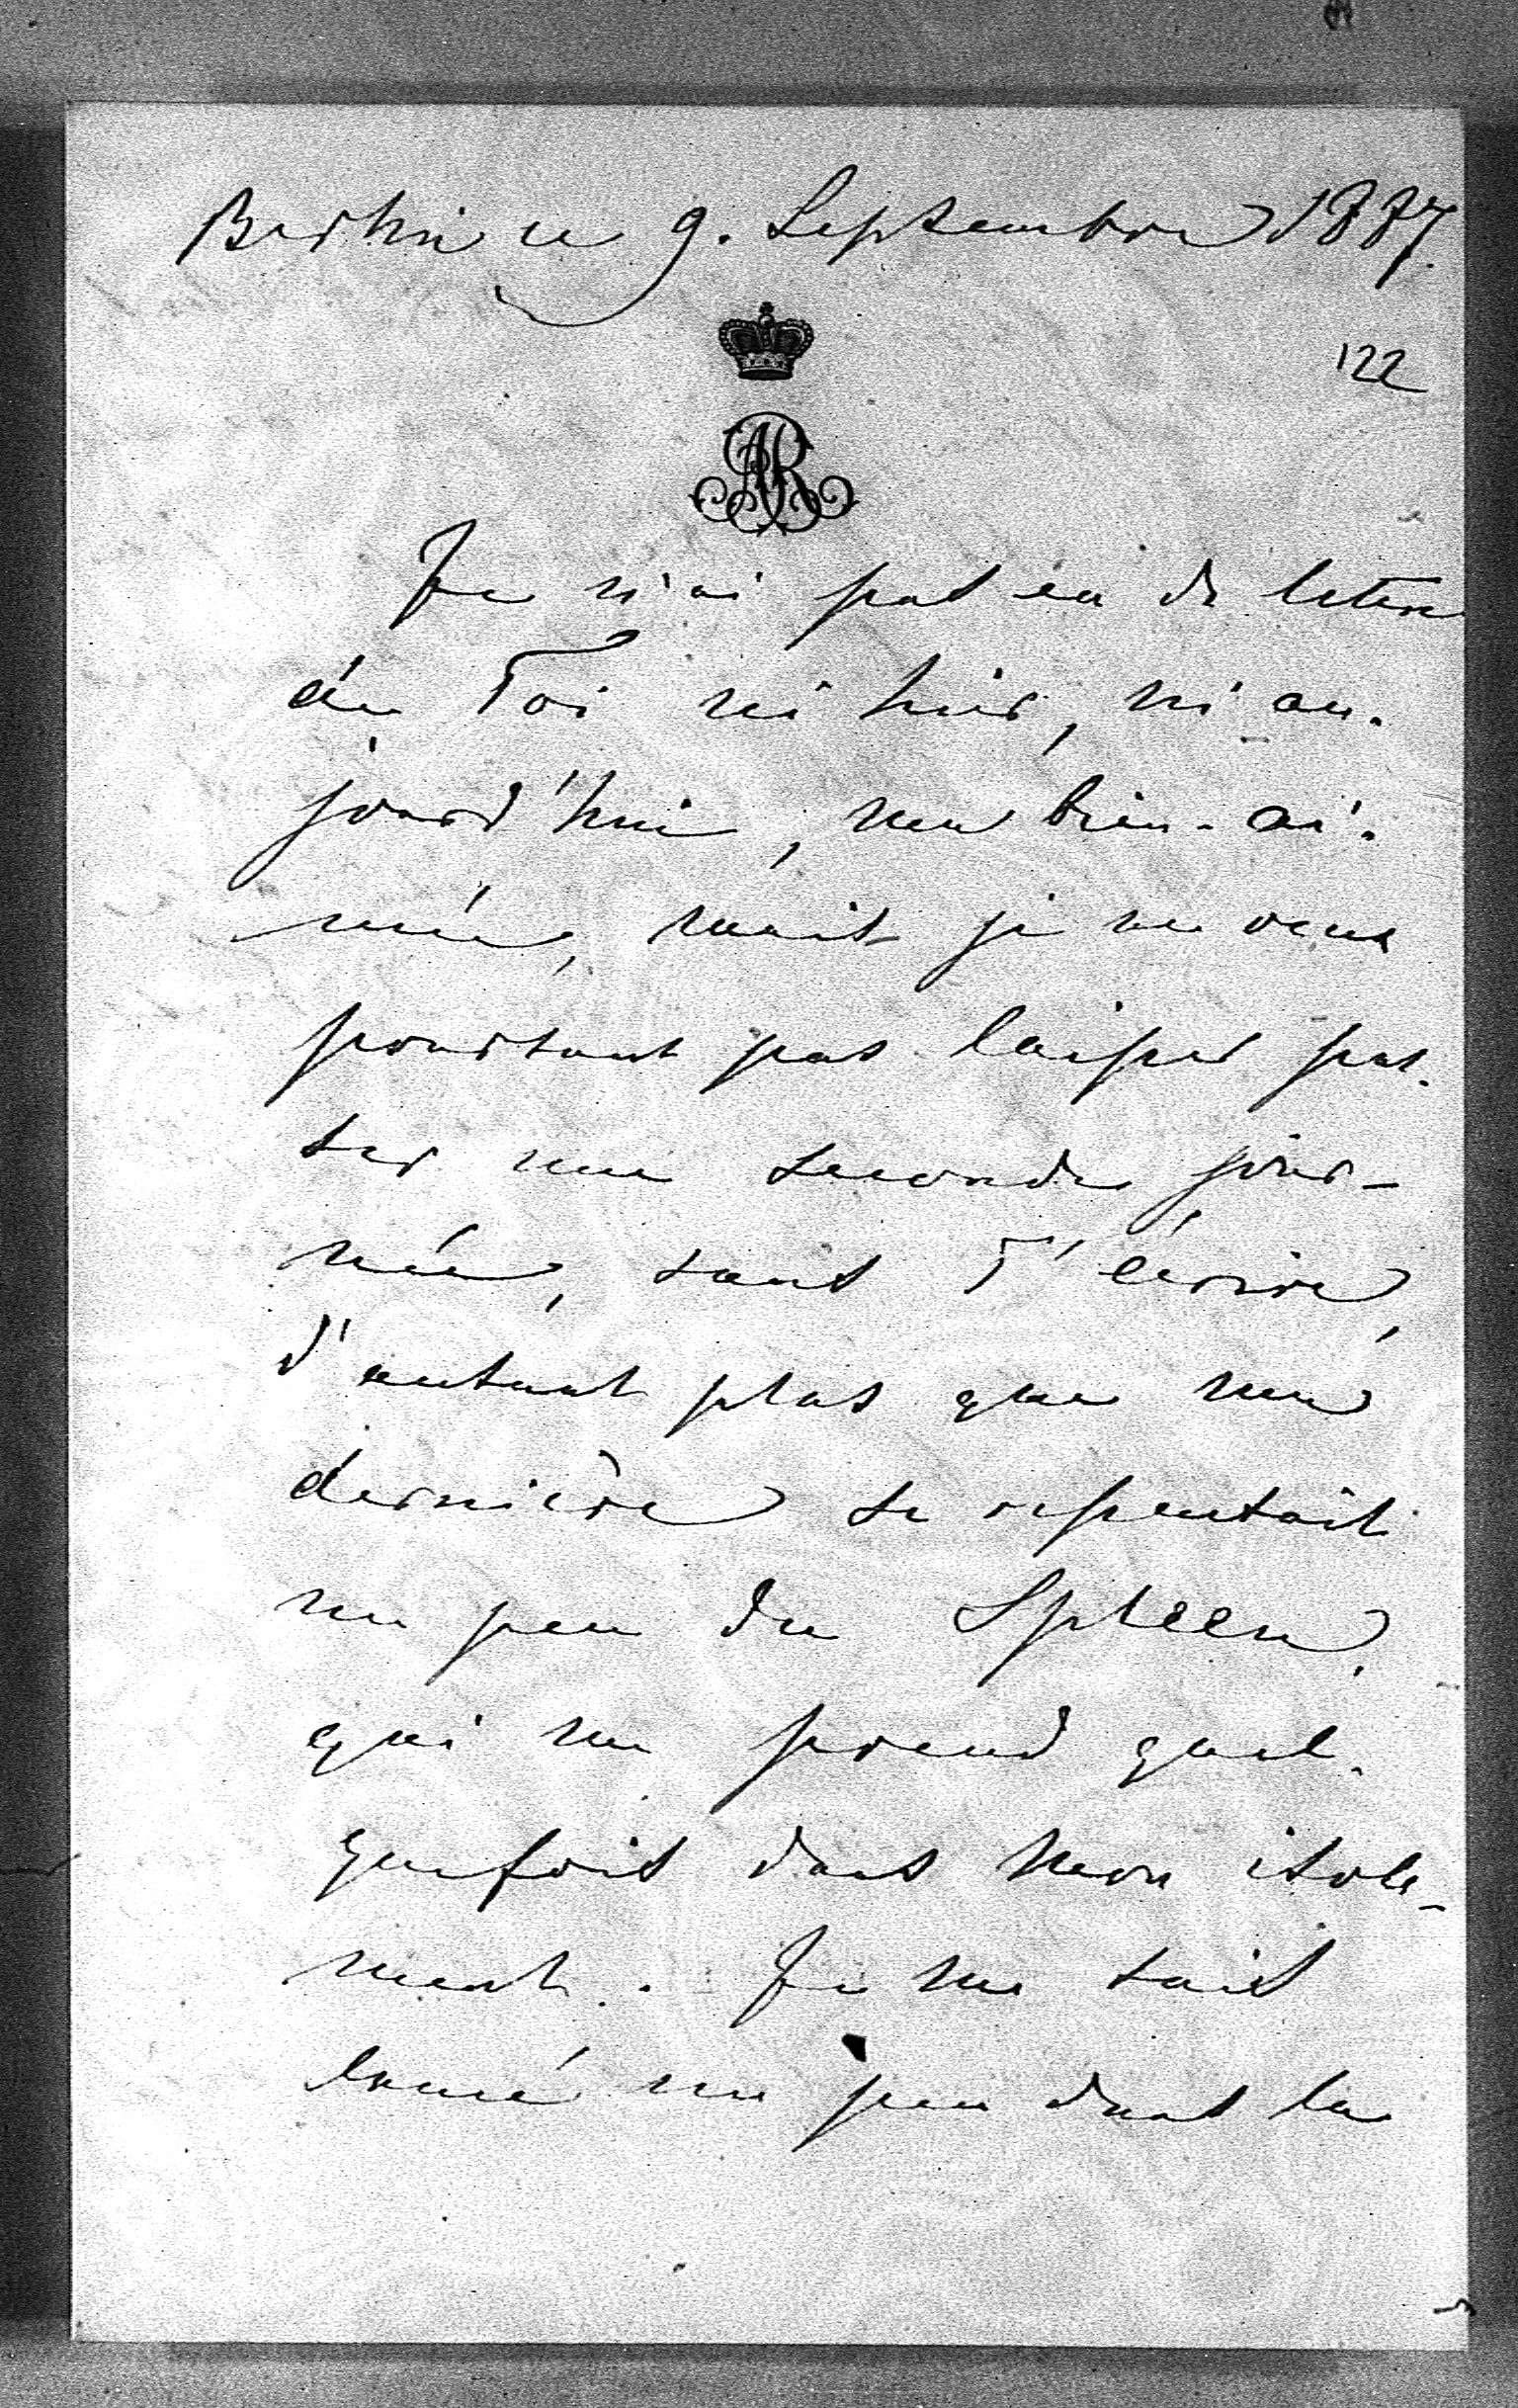 Berlin ce 9. Septembre 1887.
122
AR
Je n'ai pas eu de lettre
de Toi ni hier, ni au-
jourd'hui, ma bien-ai-
mée, mais je ne veux
pourtant pas laisser pas-
ser une seconde jour-
née, sans T'écrire,
d'autant plus que ma
dernière se repentait
un peu du Spleen,
qui me prend quel-
quefois dans mon isole-
ment. Je me suis
lancé un peu dans la